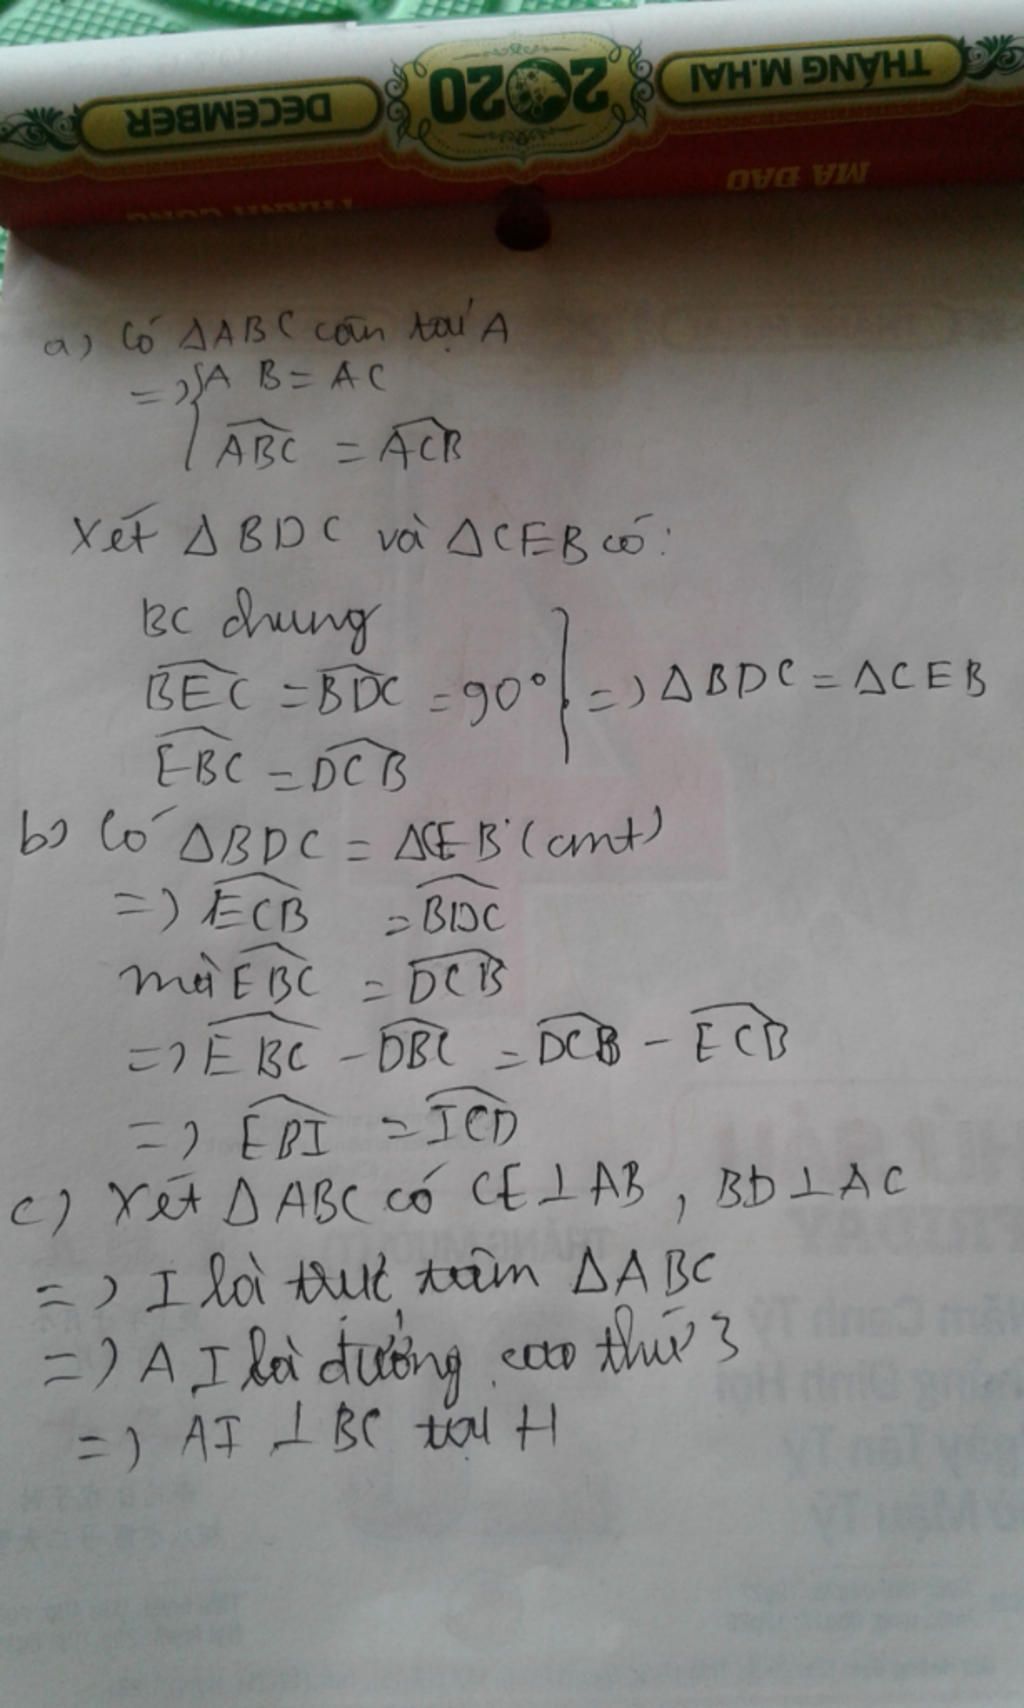 THÁNG M.HAI 2020 DECEMBER
MÃ ĐÁO
a) Có ΔABC cân tại A
=> { AB = AC
\widehat{ABC} = \widehat{ACB}
Xét ΔBDC và ΔCEB có:
BC chung
\widehat{BEC} = \widehat{BDC} = 90° } => ΔBDC = ΔCEB
\widehat{EBC} = \widehat{DCB}
b) Có ΔBDC = ΔCEB (cmt)
=> \widehat{ECB} = \widehat{BDC}
mà \widehat{EBC} = \widehat{DCB}
=> \widehat{EBC} - \widehat{DBC} = \widehat{DCB} - \widehat{ECB}
=> \widehat{EBI} = \widehat{ICD}
c) Xét ΔABC có CE⊥AB, BD⊥AC
=> I là trực tâm ΔABC
=> AI là đường cao thứ 3
=> AI ⊥ BC tại H